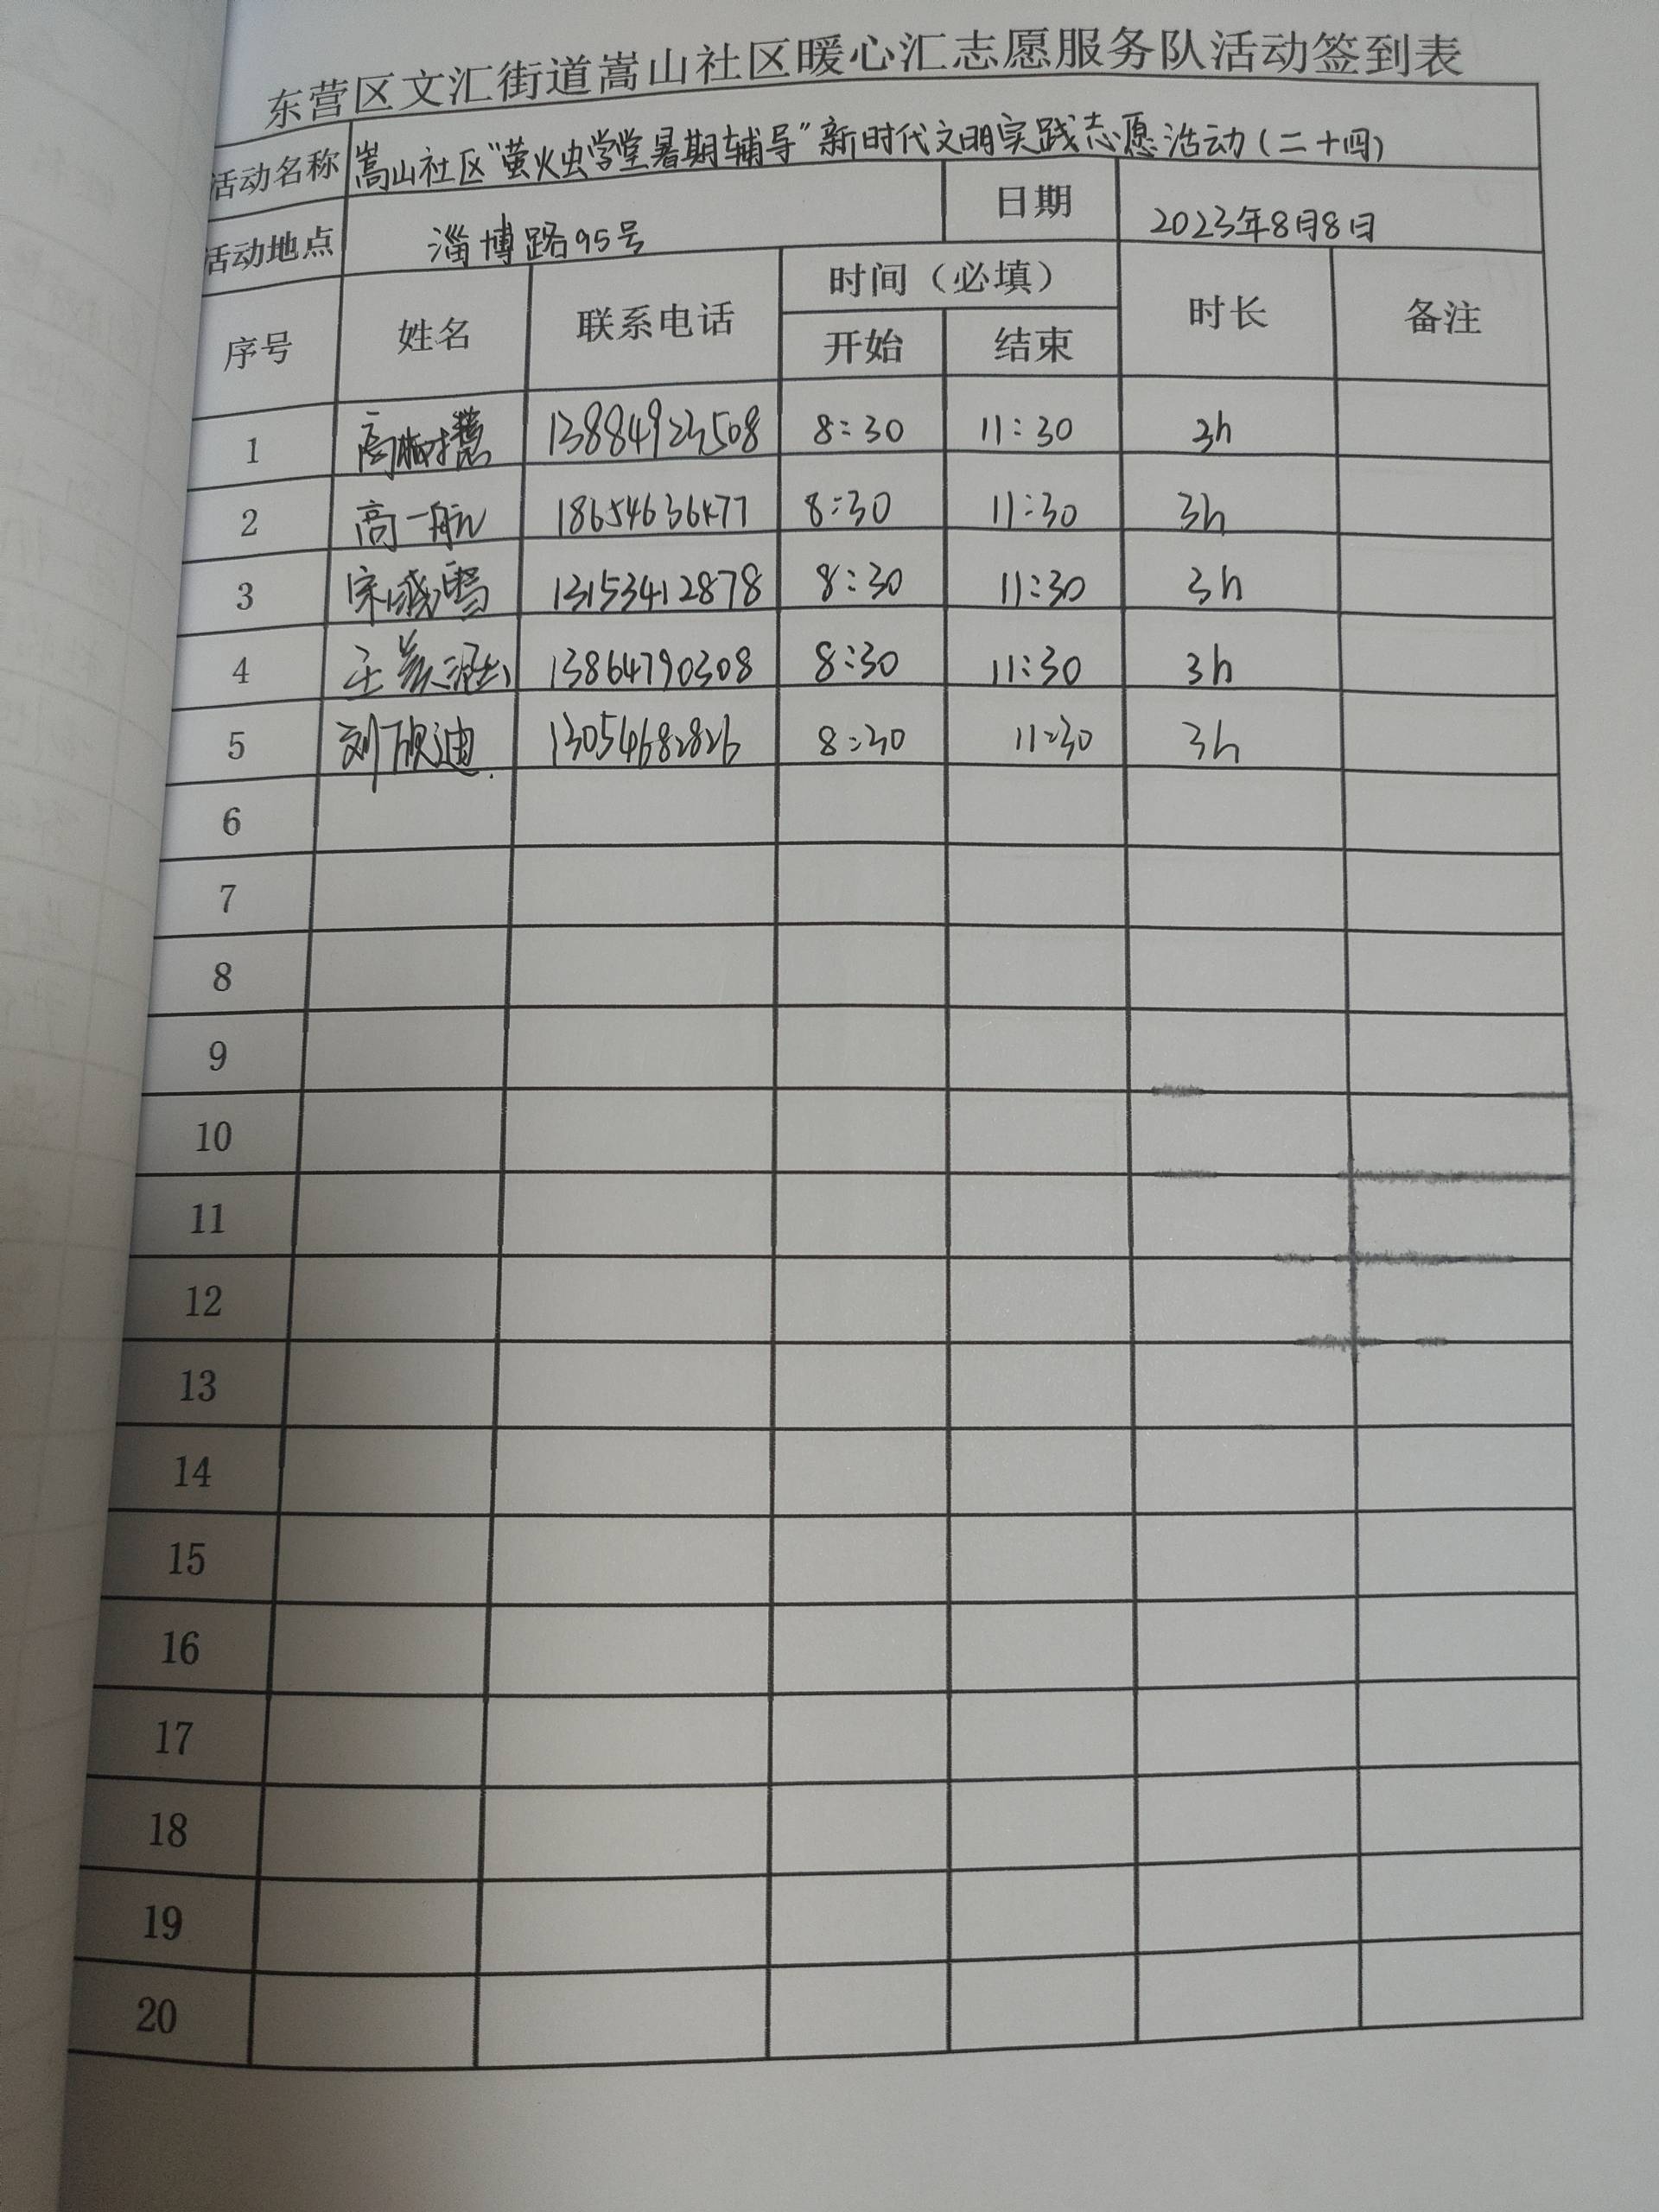 东营区文汇街道嵩山社区暖心汇志愿服务队活动签到表
活动名称 嵩山社区“萤火虫学堂暑期辅导”新时代文明实践志愿活动(二十四)
活动地点 淄博路95号 日期 2023年8月8日
序号 姓名 联系电话 时间（必填） 时长 备注
开始 结束
1 高 13884923508 8:30 11:30 3h
2 高一航 18654636477 8:30 11:30 3h
3 宋 雪 13153412878 8:30 11:30 3h
4 王 涵 13864790308 8:30 11:30 3h
5 刘欣迪 13054682826 8:30 11:30 3h
6
7
8
9
10
11
12
13
14
15
16
17
18
19
20